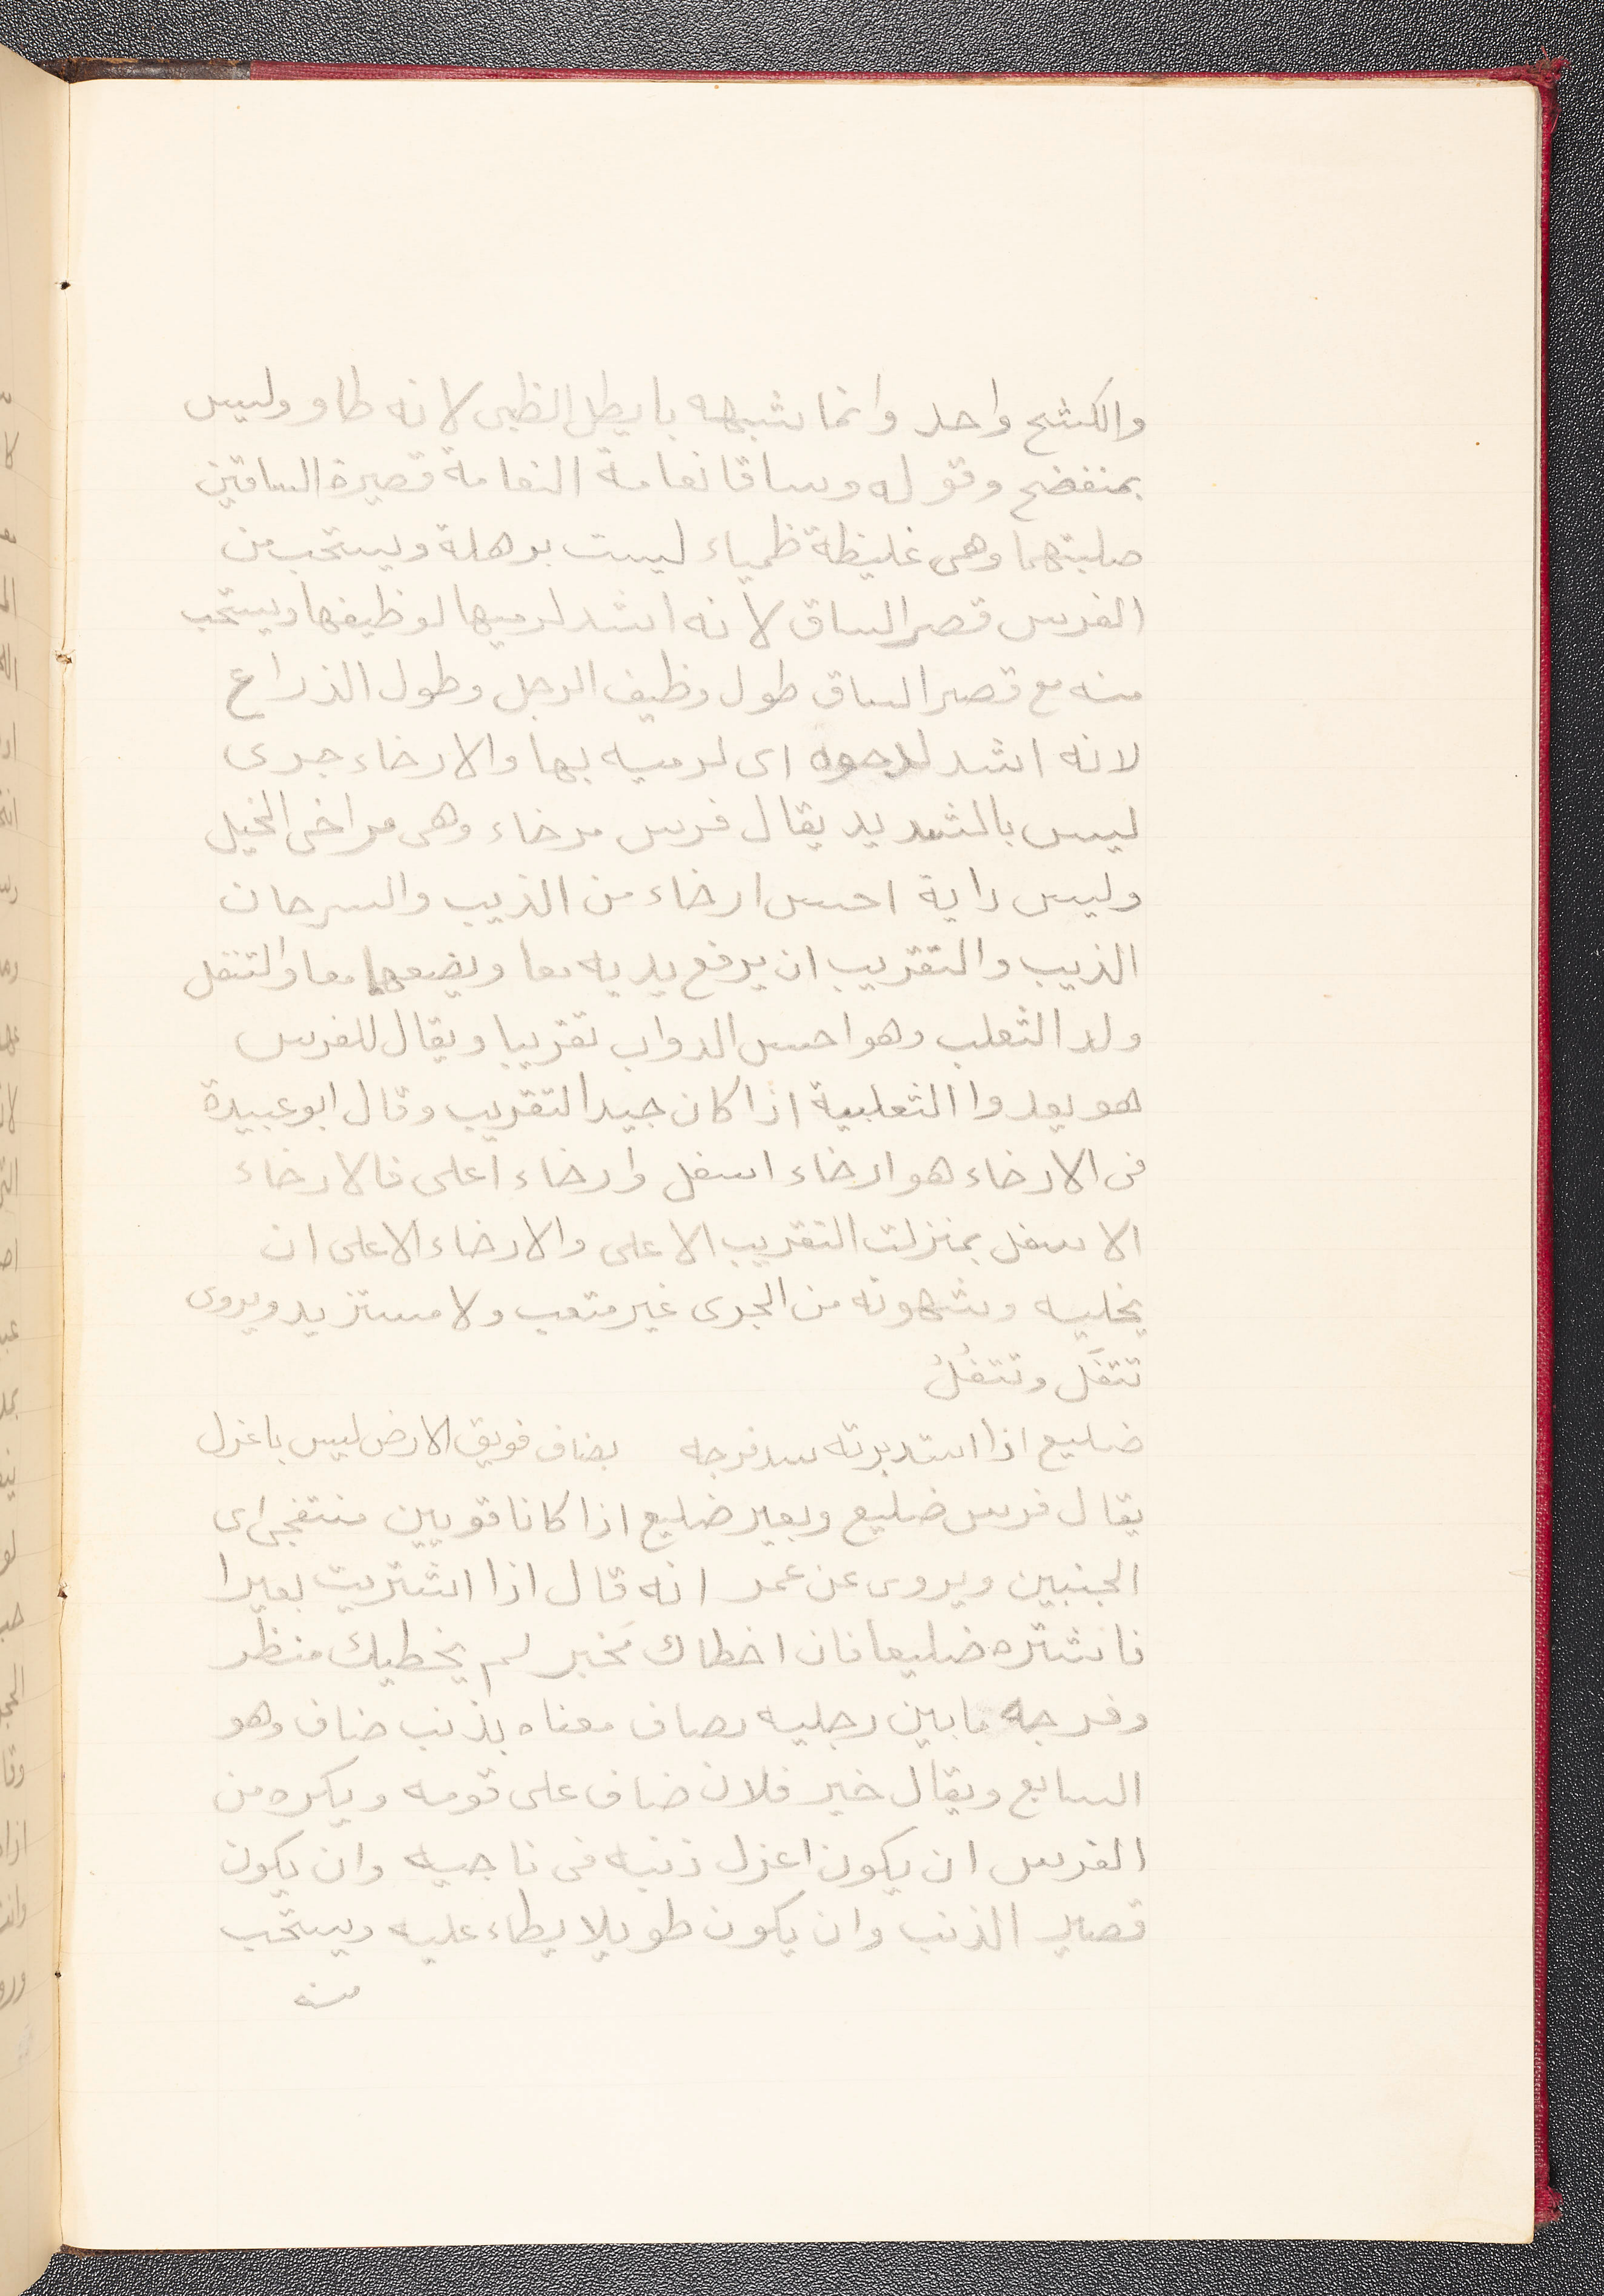 والكشح واحد وانما شبهه بايطل الظبى لانه طاو وليس
بمنفضح وقوله وساقا نعامة النعامة قصيرة الساقين
صلبتهما وهى غليظة ظمياء ليست برهلة ويستحب من
الفرس قصر الساق لانه اشد لرميها لوظيفها ويستحب
منه مع قصر الساق طول وظيف الرجل وطول الذراع
لانه اشد لدحوه اى لرميه بها والارخاء جرى
ليس بالشديد يقال فرس مرخاء وهى مراخى الخيل
وليس دابة احسن ارخاء من الذيب والسرحان
الذيب والتقريب ان يرفع يديه معا ويضعهما معا والتتفل
ولد الثعلب وهو احسن الدواب تقريبا ويقال للفرس
هو يعدوا الثعلبية اذا كان جيد التقريب وقال ابو عبيدة
فى الارخاء هو ارخاء اسفل وارخاء اعلى فالارخاء
الاسفل بمنزلت التقريب الاعلى والارخاء الاعلى ان
يخليه وشهوته من الجرى غير متعب ولا مستزيد ويروى
تتفَل وتتفُلُ
ضليع اذا استدبرته سد فرجه بضاف فويق الارض ليس باعزل
يقال فرس ضليع وبعير ضليع اذا كانا قويين منتفجى اى
الجنبين ويروى عن عمر انه قال اذا اشتريت بعيرا
فاشتره ضليعا فان اخطاك مَخبر لم يخطيك منظر
وفرجه ما بين رجليه بصاف معناه بذنب ضاف وهو
السابع ويقال خير فلان ضاف على قومه ويكره من
الفرس ان يكون اعزل ذنبه فى ناحيه وان يكون
قصير الذنب وان يكون طويلا يطاء عليه ويستحب
منه